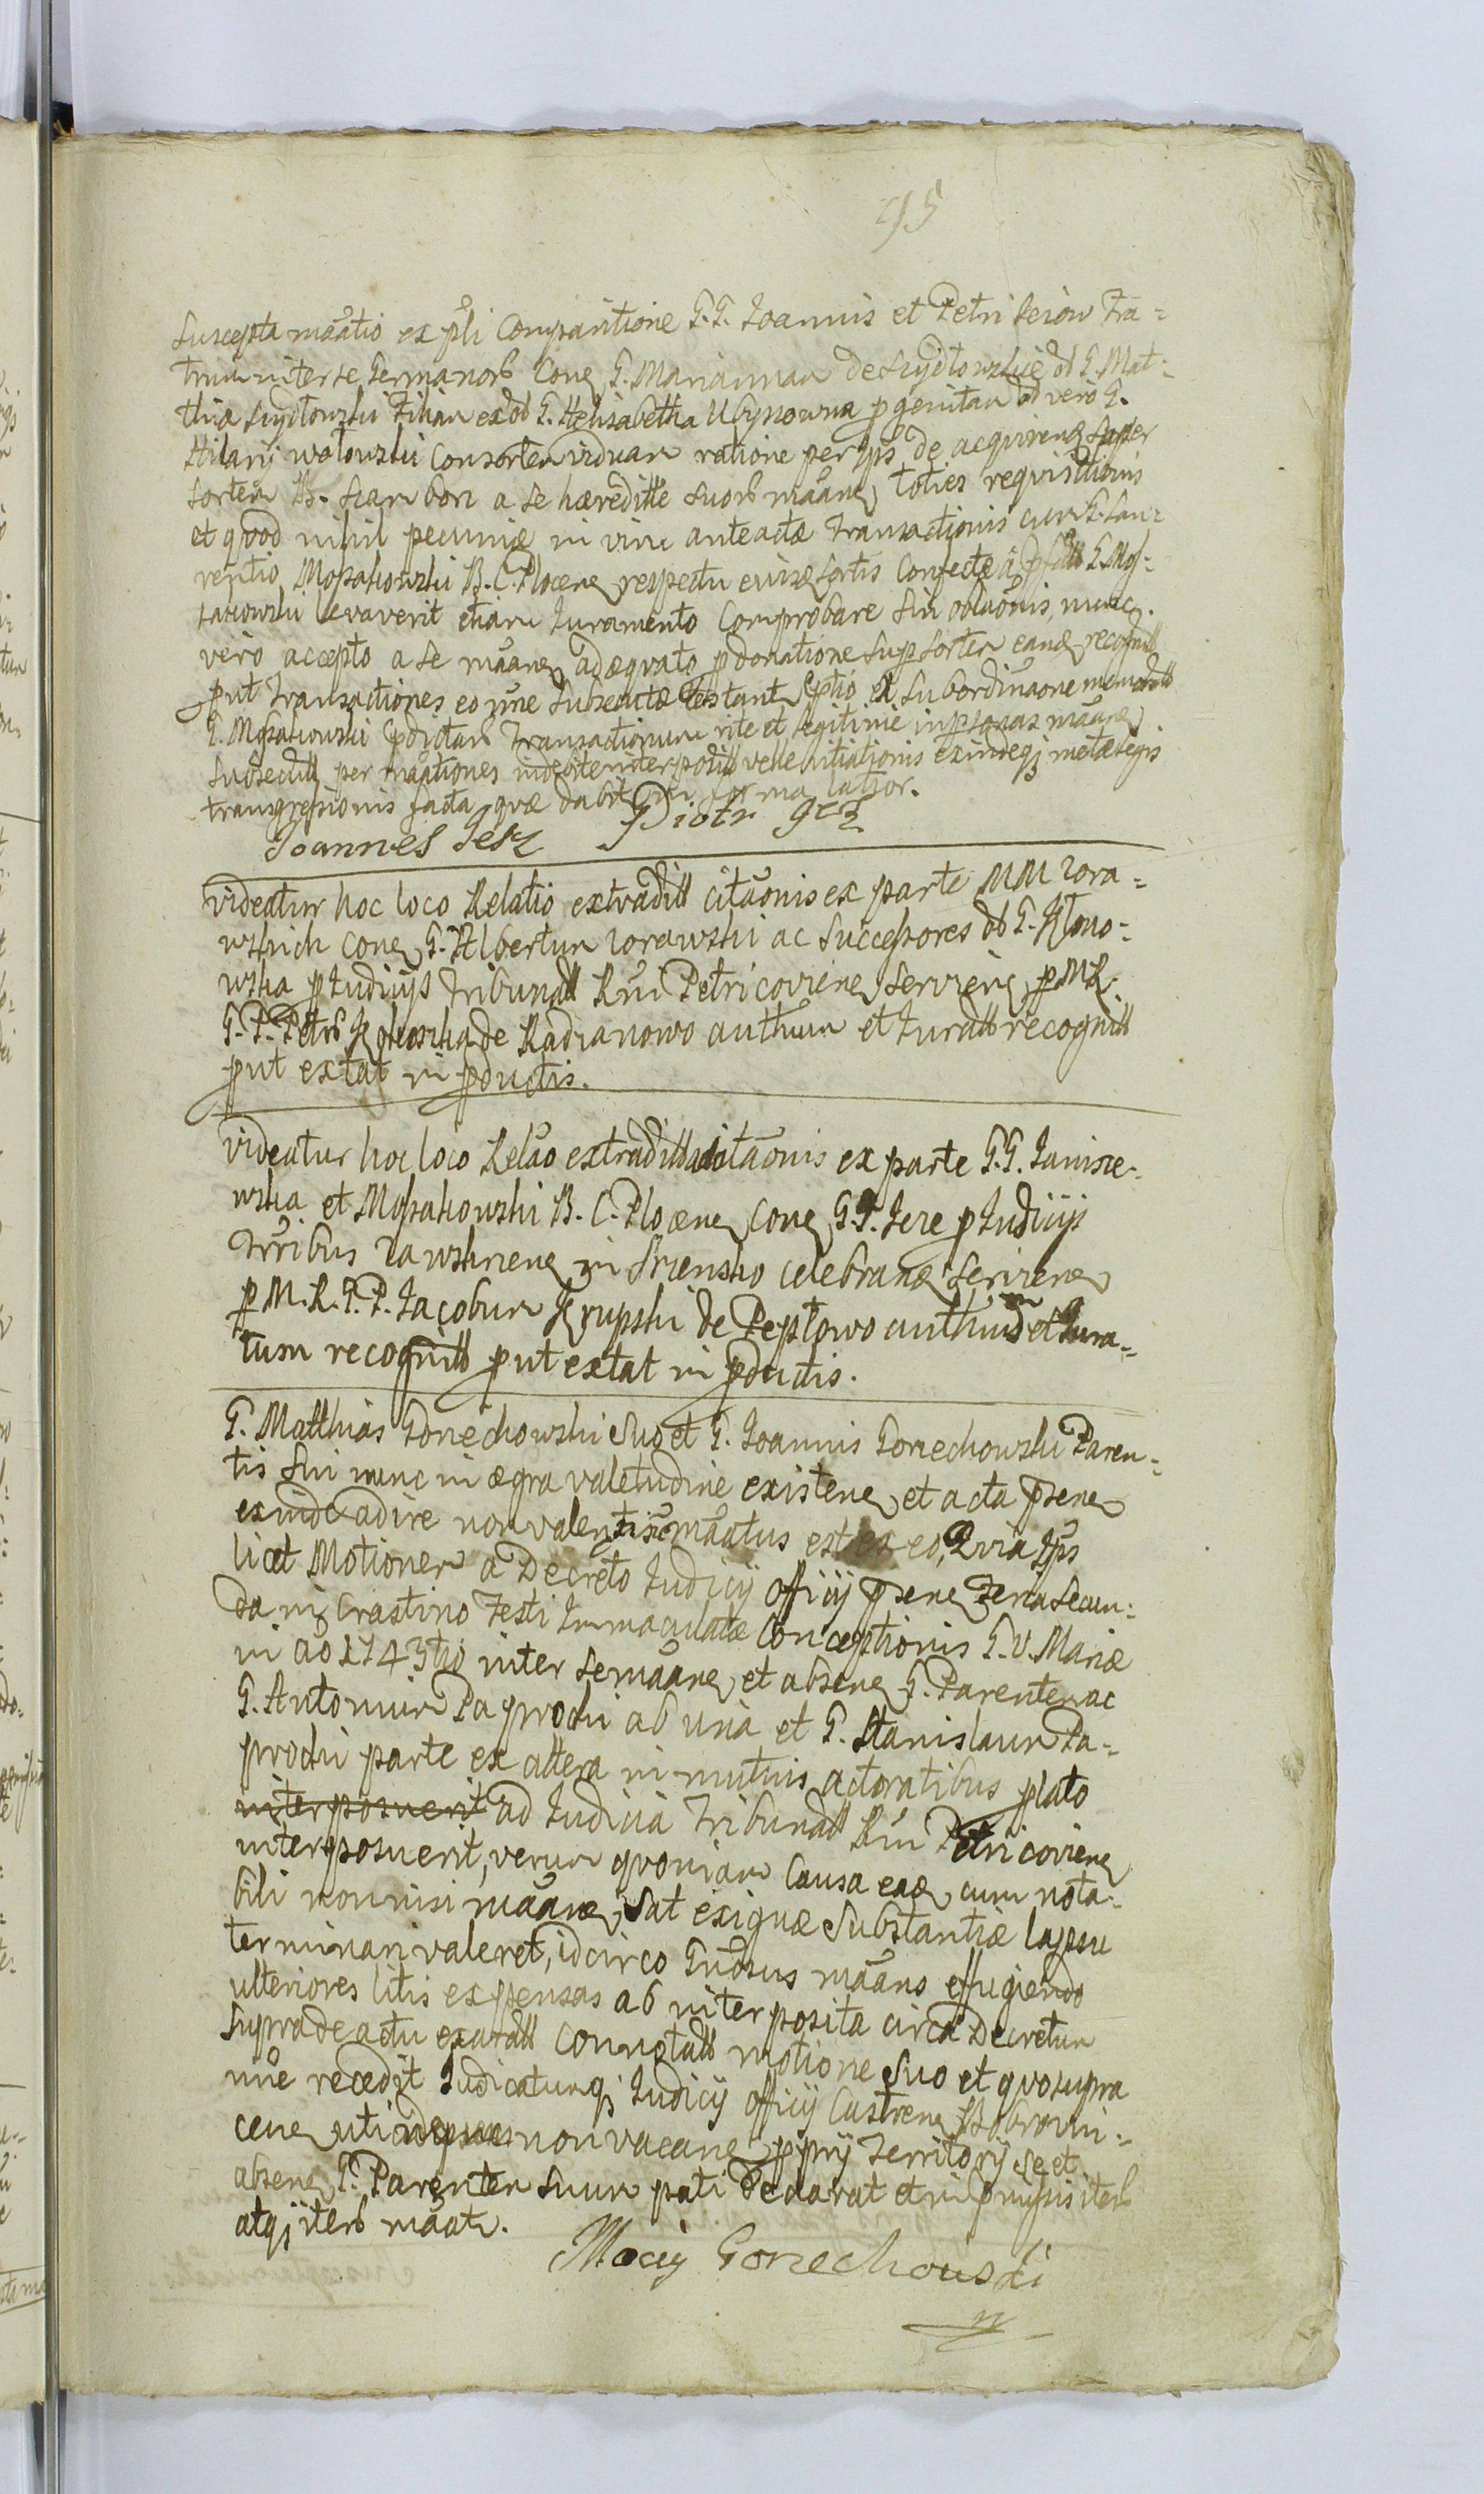 95
Suscepta maãtio ex pñli Comparitione G.G. Ioannis et Petri Jeiow Fra=
trum inter se Germanorũ Cone G. Mariannam de Szydłowskie ol G. Mat=
thiæ Szydłowski Filiam ex ol G. Helisabetha Ubyszowna pgenitam ol vero G.
Hilarij wołowski Consortem viduam ratione per Ipś de acquirenđ super
Sortem B. Suam bon a se hæreditte Suorũ maãnę toties requisitionis
et qvod nihil pecuniæ in vim anteactæ Transactionis cum G. Lau=
rentio Mossakowski B. C. Plocenę respectu eius sortis Confectæ a pfatto G. Mos=
sakowski levaverit etiam Iuramento Comprobare sui oblaõnis, nunc
vero accepto a se maãnę adæqvato p donatione Sup Sortem eand recognitt
put Transactiones eo nñe Subsecutæ testantr eptio ex Subordinaone memoratt
G. Mossakowski pdictarũ Transactionum rite et legitime in psonas maãnę
Subsecutt per maãtiones indebite interpositt velle vitiationis exindeqȝ metæ legis
transgressionis facta qvæ dabit in forma latior.
Ioannes Jesz Piotr Jez
videatur hoc loco Relatio extraditt citaõnis ex parte MM zora=
wskich Cone G. Albertum zorawski ac Successores ol G. Klono=
wska p Iudicijs Tribunatt Rñi Petricovienę Servienę p MR.
G. P. Petrũ de Radzanowo authum et Iuratt recognitt
put extat in pductis.
videatur hoc loco Relão extraditt citaõnis ex parte G.G. Janisze=
wska et Mossakowski B. C. Plocenę Cone G.G. Jeze p Iudicijs
Trribus zawskrzenę in Srzensko celebranđ Servienę
p M. R. G. P. Jacobum Krupski de Pepłowo authum et Iura=
tum recognitt put extat in pductis.
G. Matthias Gorzechowski Suo et G. Ioannis Gorzechowski Paren=
tis Sui nunc in ægra valetudine existenę et acta psenę
exinde adire non valentis maãtus est ex eo, Qvia Ips
licet Motionem a Decreto Iudicij officij psenę Feria Secun=
da in Crastino Festi Immaculatæ Conceptionis G. V. Mariæ
in ao 1743tio inter se maãnę et absenę G. Parentem ac
G. Antonium Paprocki ab una et G. Stanislaum Pa=
procki parte ex altera in mutuis actoratibus plato
interposuerit ad Iudicia Tribunatt Rñi Petricovienę
interposuerit, verum qvoniam Causa eađ cum nota=
bili nonnisi maãnę, Sat exiguæ Substantiæ lapsu
terminari valeret, idcirco Gñosus maãns effugiendo
ulteriores litis expensas ab interposita circa Decretum
Supra de actu exaratt Connotatt motione Suo et qvo supra
nñe recedit Iudicatumqȝ Iudicij officij Castrenę Bobrowni=
cenę uti non vacanę pprij Territorij Se et
absenę G. Parentem Suum pati declarat et in pmissis iterũ
atqȝ iterũ maãtr.
Maciy Gorzechowski